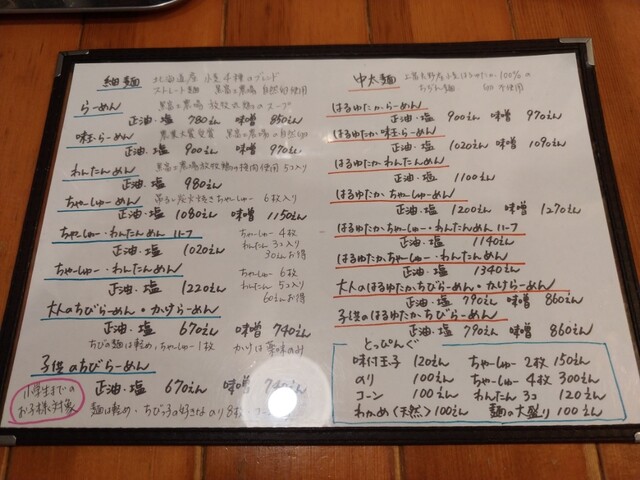 細麺 北海道産 小麦4種のブレンド
ストレート麺
らーめん 放牧
正油・塩 780えん 味噌 850えん
味玉らーめん
正油・塩 900えん 味噌 970えん
わんたんめん 5コ入り
正油・塩 980えん
ちゃーしゅーめん ちゃーしゅー 6枚入り
正油・塩 1080えん 味噌 1150えん
ちゃーしゅー・わんたんめん ハーフ ちゃーしゅー 4枚
わんたん 3コ入り
正油・塩 1020えん 30えんお得
ちゃーしゅー・わんたんめん ちゃーしゅー 6枚
わんたん 5コ入り
正油・塩 1220えん 60えんお得
大人のちびらーめん・かけらーめん
正油・塩 670えん 味噌 740えん
ちびの麺は軽め、ちゃーしゅー1枚 かけは薬味のみ
子供のちびらーめん
小学生までの
お子様対象
正油・塩 670えん 味噌 740えん
麺は軽め・ちびっ子の好きな のり8枚・コーン
中太麺 100%の
ちぢれ麺 不使用
はるゆたからーめん
正油・塩 900えん 味噌 970えん
はるゆたか味玉らーめん
正油・塩 1020えん 味噌 1090えん
はるゆたかわんたんめん
正油・塩 1100えん
はるゆたかちゃーしゅーめん
正油・塩 1200えん 味噌 1270えん
はるゆたかちゃーしゅー・わんたんめん ハーフ
正油・塩 1140えん
はるゆたかちゃーしゅー・わんたんめん
正油・塩 1340えん
大人のはるゆたかちびらーめん・かけらーめん
正油・塩 790えん 味噌 860えん
子供のはるゆたかちびらーめん
正油・塩 790えん 味噌 860えん
とっぴんぐ
味付玉子 120えん ちゃーしゅー 2枚 150えん
のり 100えん ちゃーしゅー 4枚 300えん
コーン 100えん わんたん 3コ 120えん
わかめ〈天然〉100えん 麺の大盛り 100えん